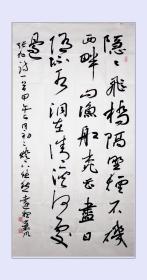 隱〻飛橋隔野煙石磯
西畔問漁船桃花盡日
隨流水洞在清谿何處
邊
張旭詩一首